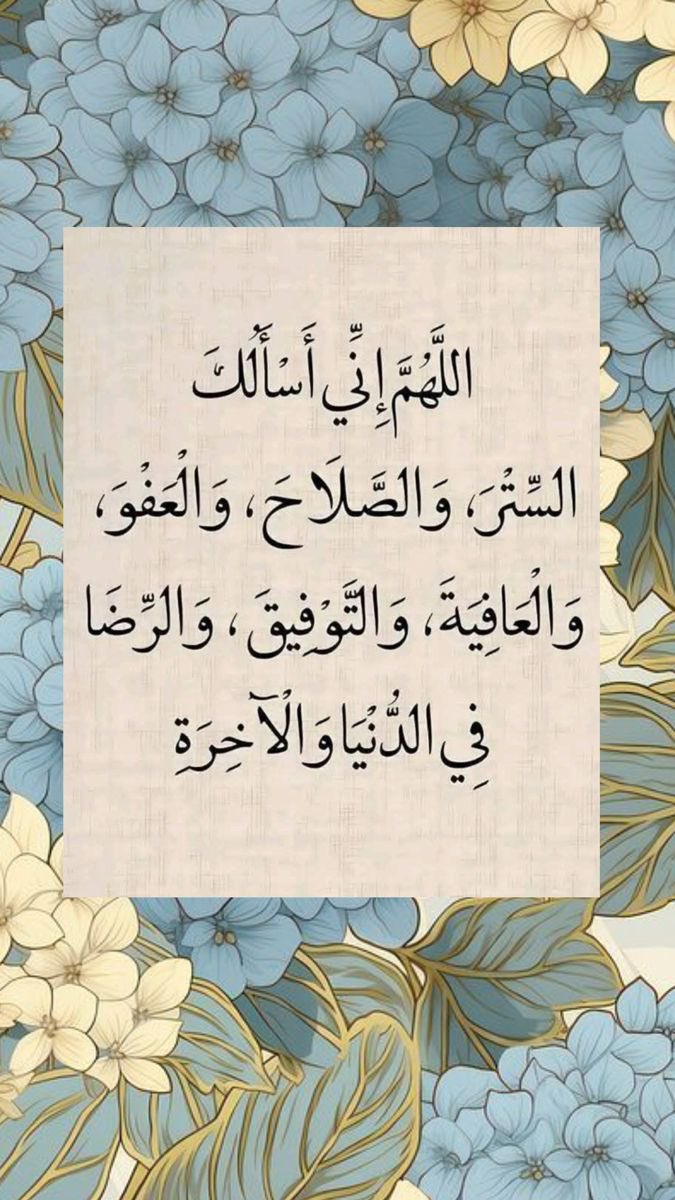 اللَّهُمَّ إِنِّي أَسْأَلُكَ
السِّتْرَ، وَالصَّلَاحَ، وَالْعَفْوَ،
وَالْعَافِيَةَ، وَالتَّوْفِيقَ، وَالرِّضَا
فِي الدُّنْيَا وَالْآخِرَةِ